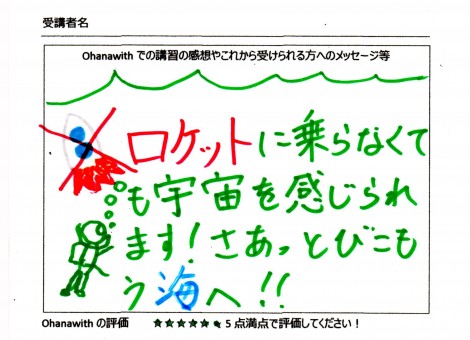 受講者名
Ohanawith での講習の感想やこれから受けられる方へのメッセージ等
ロケットに乗らなくて
も宇宙を感じられ
ます!さあっとびこも
う海へ!!
Ohanawith の評価 ★★★★★★ 5 点満点で評価してください!